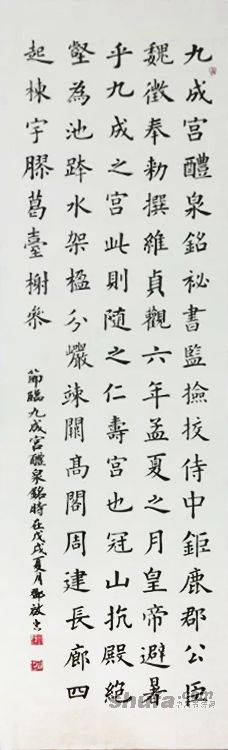 九成宮醴泉銘祕書監撿挍侍中鉅鹿郡公臣
魏徵奉勑撰維貞觀六年孟夏之月皇帝避暑
乎九成之宮此則随之仁壽宮也冠山抗殿絶
壑為池跨水架楹分巖竦闕高閣周建長廊四
起棟宇膠葛臺榭叅
節臨九成宮醴泉銘時在戊戌夏月鄧